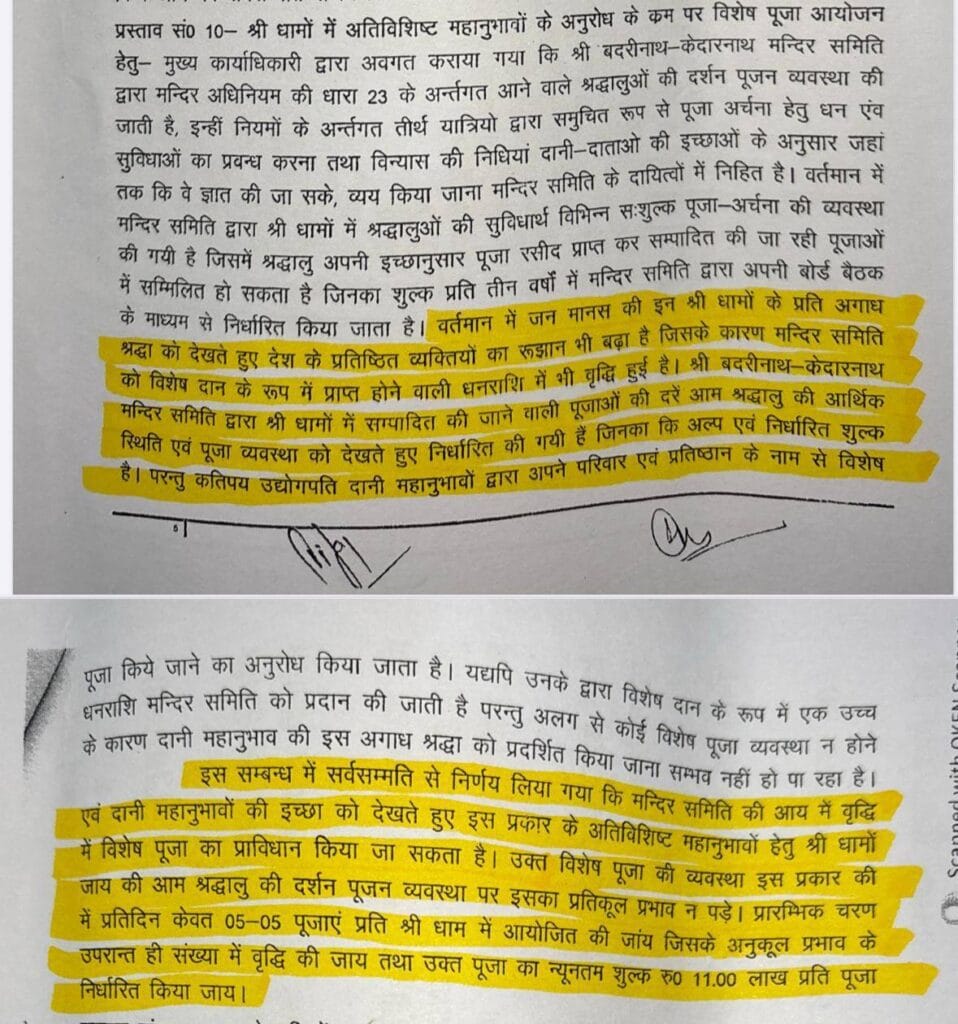 प्रस्ताव सं0 10– श्री धामों में अतिविशिष्ट महानुभावों के अनुरोध के कम पर विशेष पूजा आयोजन
हेतु– मुख्य कार्याधिकारी द्वारा अवगत कराया गया कि श्री बदरीनाथ–केदारनाथ मन्दिर समिति
द्वारा मन्दिर अधिनियम की धारा 23 के अर्न्तगत आने वाले श्रद्धालुओं की दर्शन पूजन व्यवस्था की
जाती है, इन्हीं नियमों के अर्न्तगत तीर्थ यात्रियो द्वारा समुचित रूप से पूजा अर्चना हेतु धन एंव
सुविधाओं का प्रवन्ध करना तथा विन्यास की निधियां दानी–दाताओ की इच्छाओं के अनुसार जहां
तक कि वे ज्ञात की जा सके, व्यय किया जाना मन्दिर समिति के दायित्वों में निहित है। वर्तमान में
मन्दिर समिति द्वारा श्री धामों में श्रद्धालुओं की सुविधार्थ विभिन्न सःशुल्क पूजा–अर्चना की व्यवस्था
की गयी है जिसमें श्रद्धालु अपनी इच्छानुसार पूजा रसीद प्राप्त कर सम्पादित की जा रही पूजाओं
में सम्मिलित हो सकता है जिनका शुल्क प्रति तीन वर्षों में मन्दिर समिति द्वारा अपनी बोर्ड बैठक
के माध्यम से निर्धारित किया जाता है। वर्तमान में जन मानस की इन श्री धामों के प्रति अगाध
श्रद्धा को देखते हुए देश के प्रतिष्ठित व्यक्तियों का रूझान भी बढ़ा है जिसके कारण मन्दिर समिति
को विशेष दान के रूप में प्राप्त होने वाली धनराशि में भी वृद्धि हुई है। श्री बदरीनाथ–केदारनाथ
मन्दिर समिति द्वारा श्री धामों में सम्पादित की जाने वाली पूजाओं की दरें आम श्रद्धालु की आर्थिक
स्थिति एवं पूजा व्यवस्था को देखते हुए निर्धारित की गयी हैं जिनका कि अल्प एवं निर्धारित शुल्क
है। परन्तु कतिपय उद्योगपति दानी महानुभावों द्वारा अपने परिवार एवं प्रतिष्ठान के नाम से विशेष
पूजा किये जाने का अनुरोध किया जाता है। यद्यपि उनके द्वारा विशेष दान के रूप में एक उच्च
धनराशि मन्दिर समिति को प्रदान की जाती है परन्तु अलग से कोई विशेष पूजा व्यवस्था न होने
के कारण दानी महानुभाव की इस अगाध श्रद्धा को प्रदर्शित किया जाना सम्भव नहीं हो पा रहा है।
इस सम्बन्ध में सर्वसम्मति से निर्णय लिया गया कि मन्दिर समिति की आय में वृद्धि
एवं दानी महानुभावों की इच्छा को देखते हुए इस प्रकार के अतिविशिष्ट महानुभावों हेतु श्री धामों
में विशेष पूजा का प्राविधान किया जा सकता है। उक्त विशेष पूजा की व्यवस्था इस प्रकार की
जाय की आम श्रद्धालु की दर्शन पूजन व्यवस्था पर इसका प्रतिकूल प्रभाव न पड़े। प्रारम्भिक चरण
में प्रतिदिन केवत 05–05 पूजाएं प्रति श्री धाम में आयोजित की जांय जिसके अनुकूल प्रभाव के
उपरान्त ही संख्या में वृद्धि की जाय तथा उक्त पूजा का न्यूनतम शुल्क रु0 11.00 लाख प्रति पूजा
निर्धारित किया जाय।
Scanned with OKEN